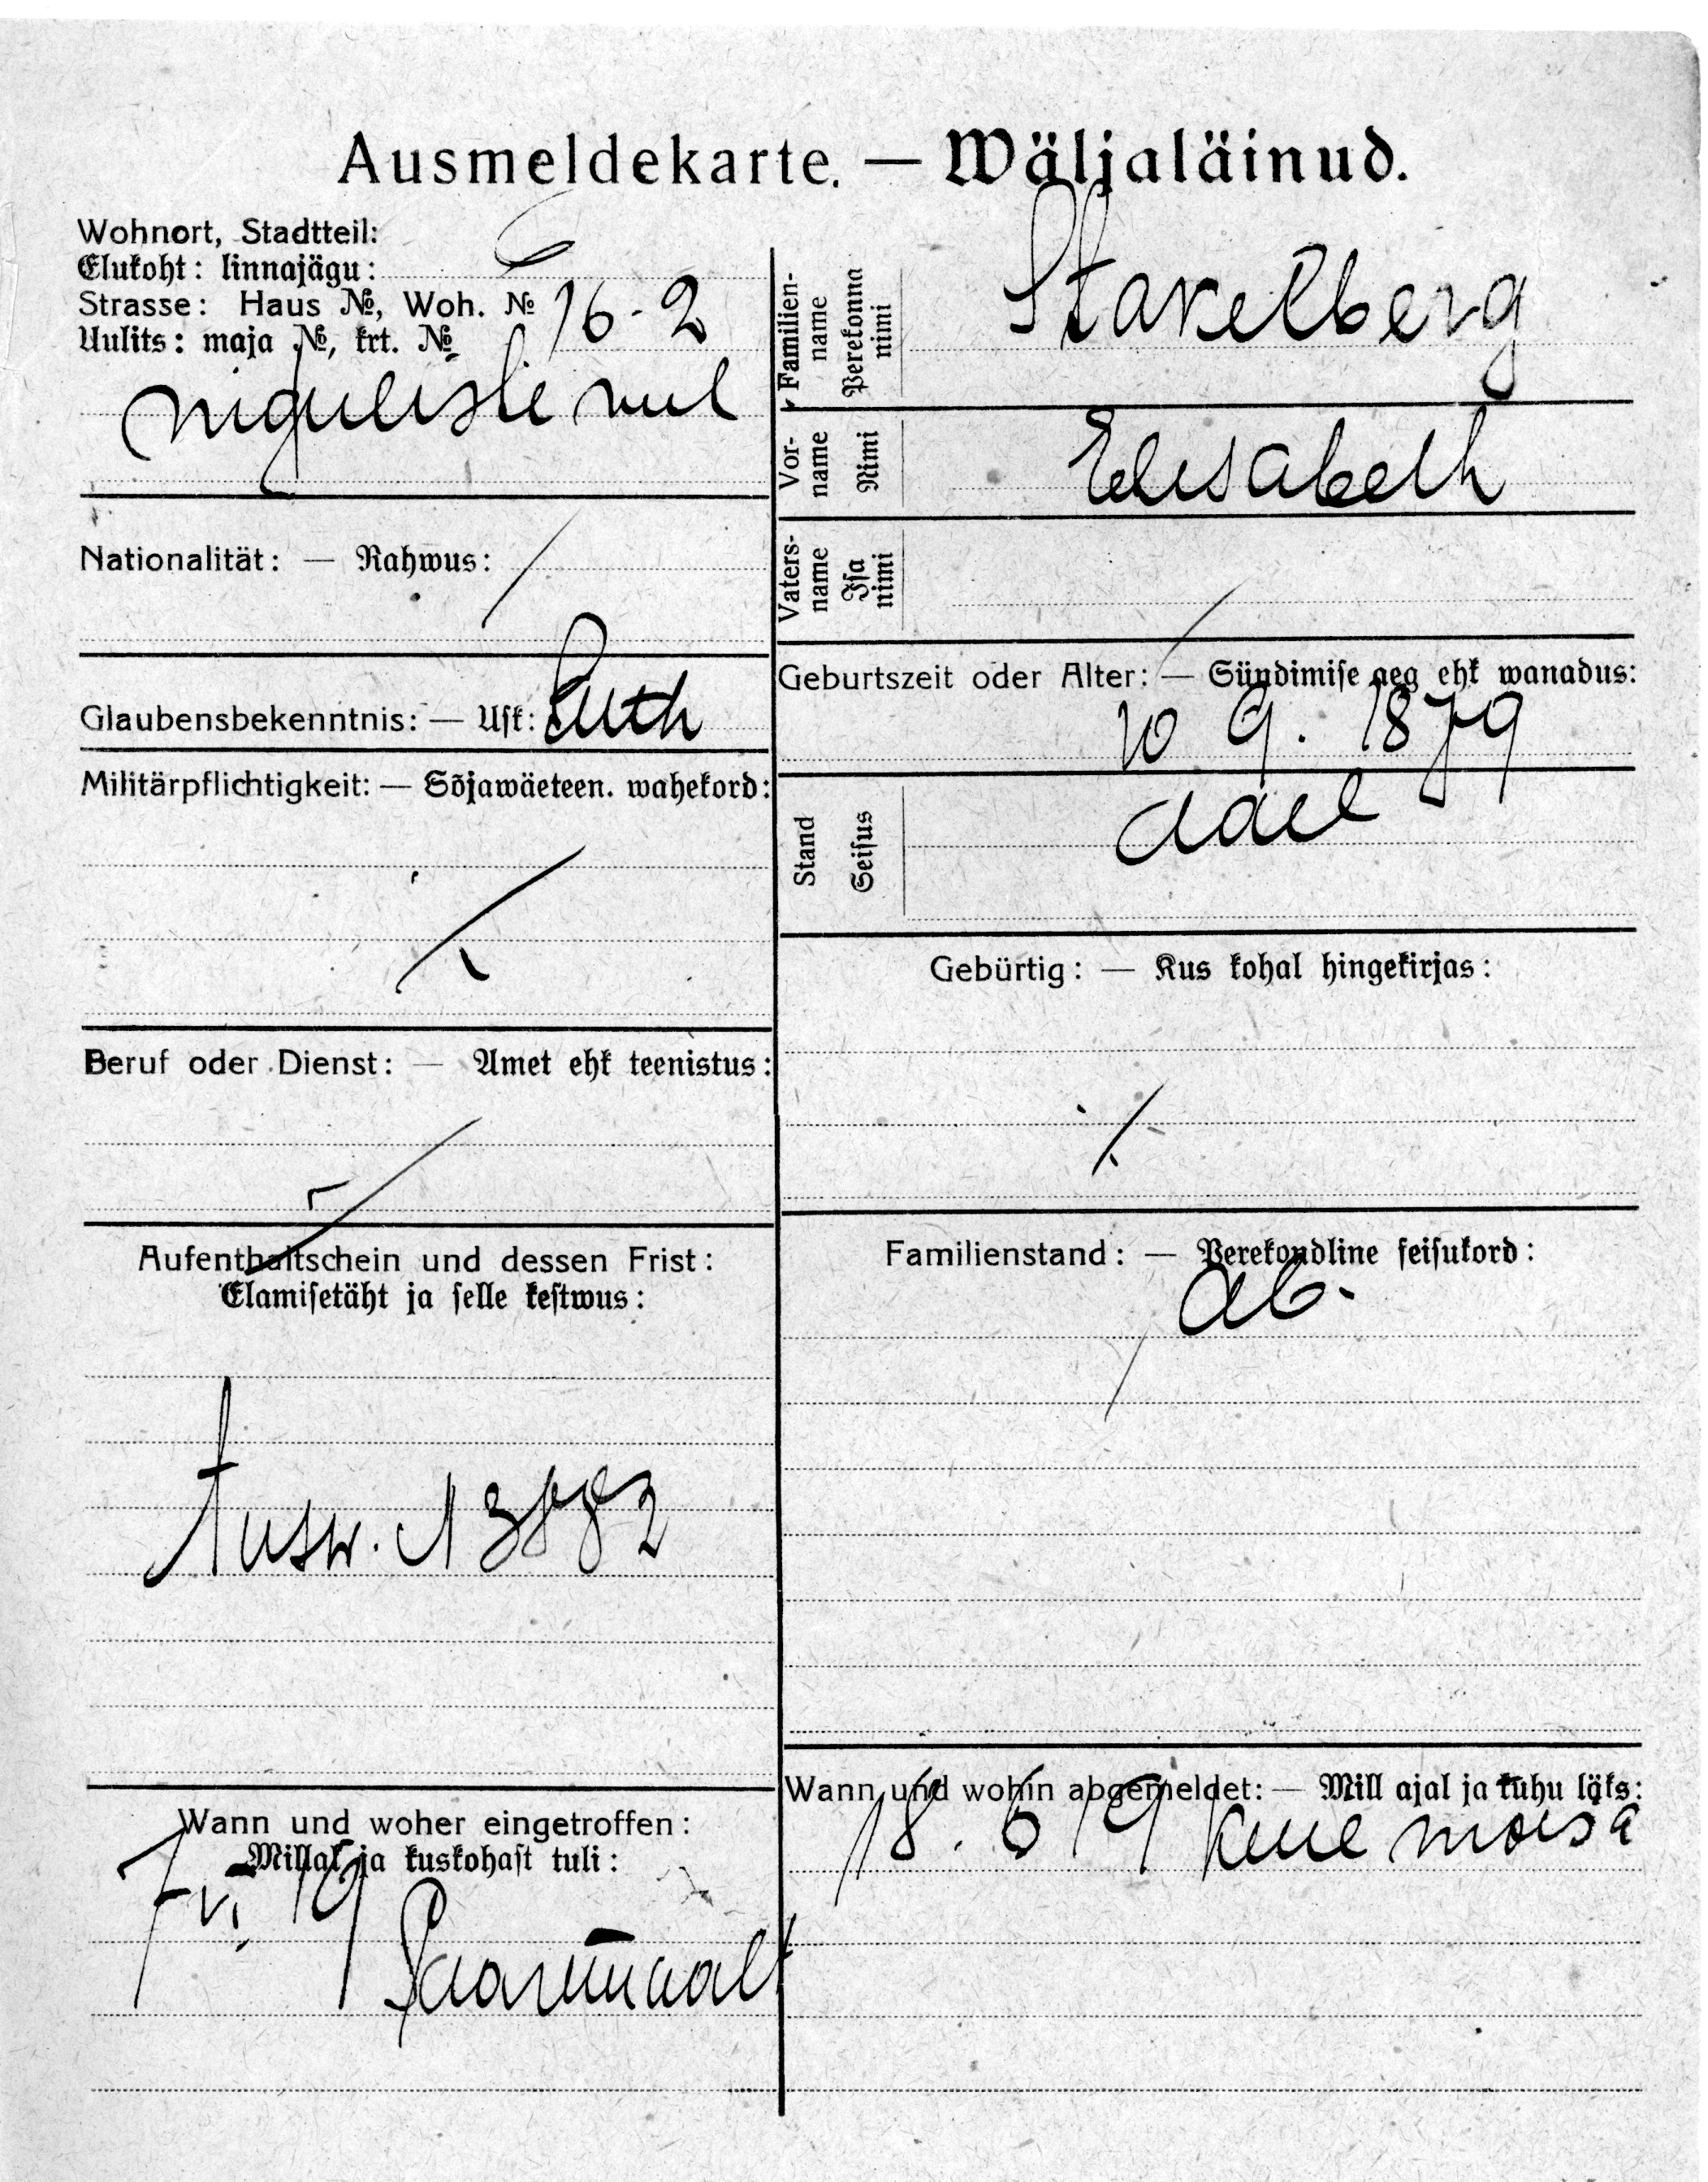 Ausmeldekarte. — Wäljaläinud.
Wohnort, Stadtteil:
Elukoht: linnajägu:
Strasse: Haus №, Woh. № 16-2
Uulits: maja №, krt. №
niguliste uul
Nationalität: — Rahwus:
Glaubensbekenntnis: — Usk: Luth
Militärpflichtigkeit: — Sõjawäeteen. wahekord:
Beruf oder Dienst: — Amet ehk teenistus:
Aufenthaltschein und dessen Frist:
Elamisetäht ja selle kestwus:
Ausw. 13882
Wann und woher eingetroffen:
Millal ja kuskohast tuli:
7 VI 19
Familien-
name
Perekonna
nimi
Stakelberg
Vor-
name
Nimi
Elisabeth
Vaters-
name
Isa
nimi
Geburtszeit oder Alter: — Sündimise aeg ehk wanadus:
10 9. 1879
Stand
Seisus
adel
Gebürtig: — Kus kohal hingekirjas:
Familienstand: — Perekondline seisukord:
ab.
Wann und wohin abgemeldet: — Mill ajal ja kuhu läks:
18. 6 19 moisa